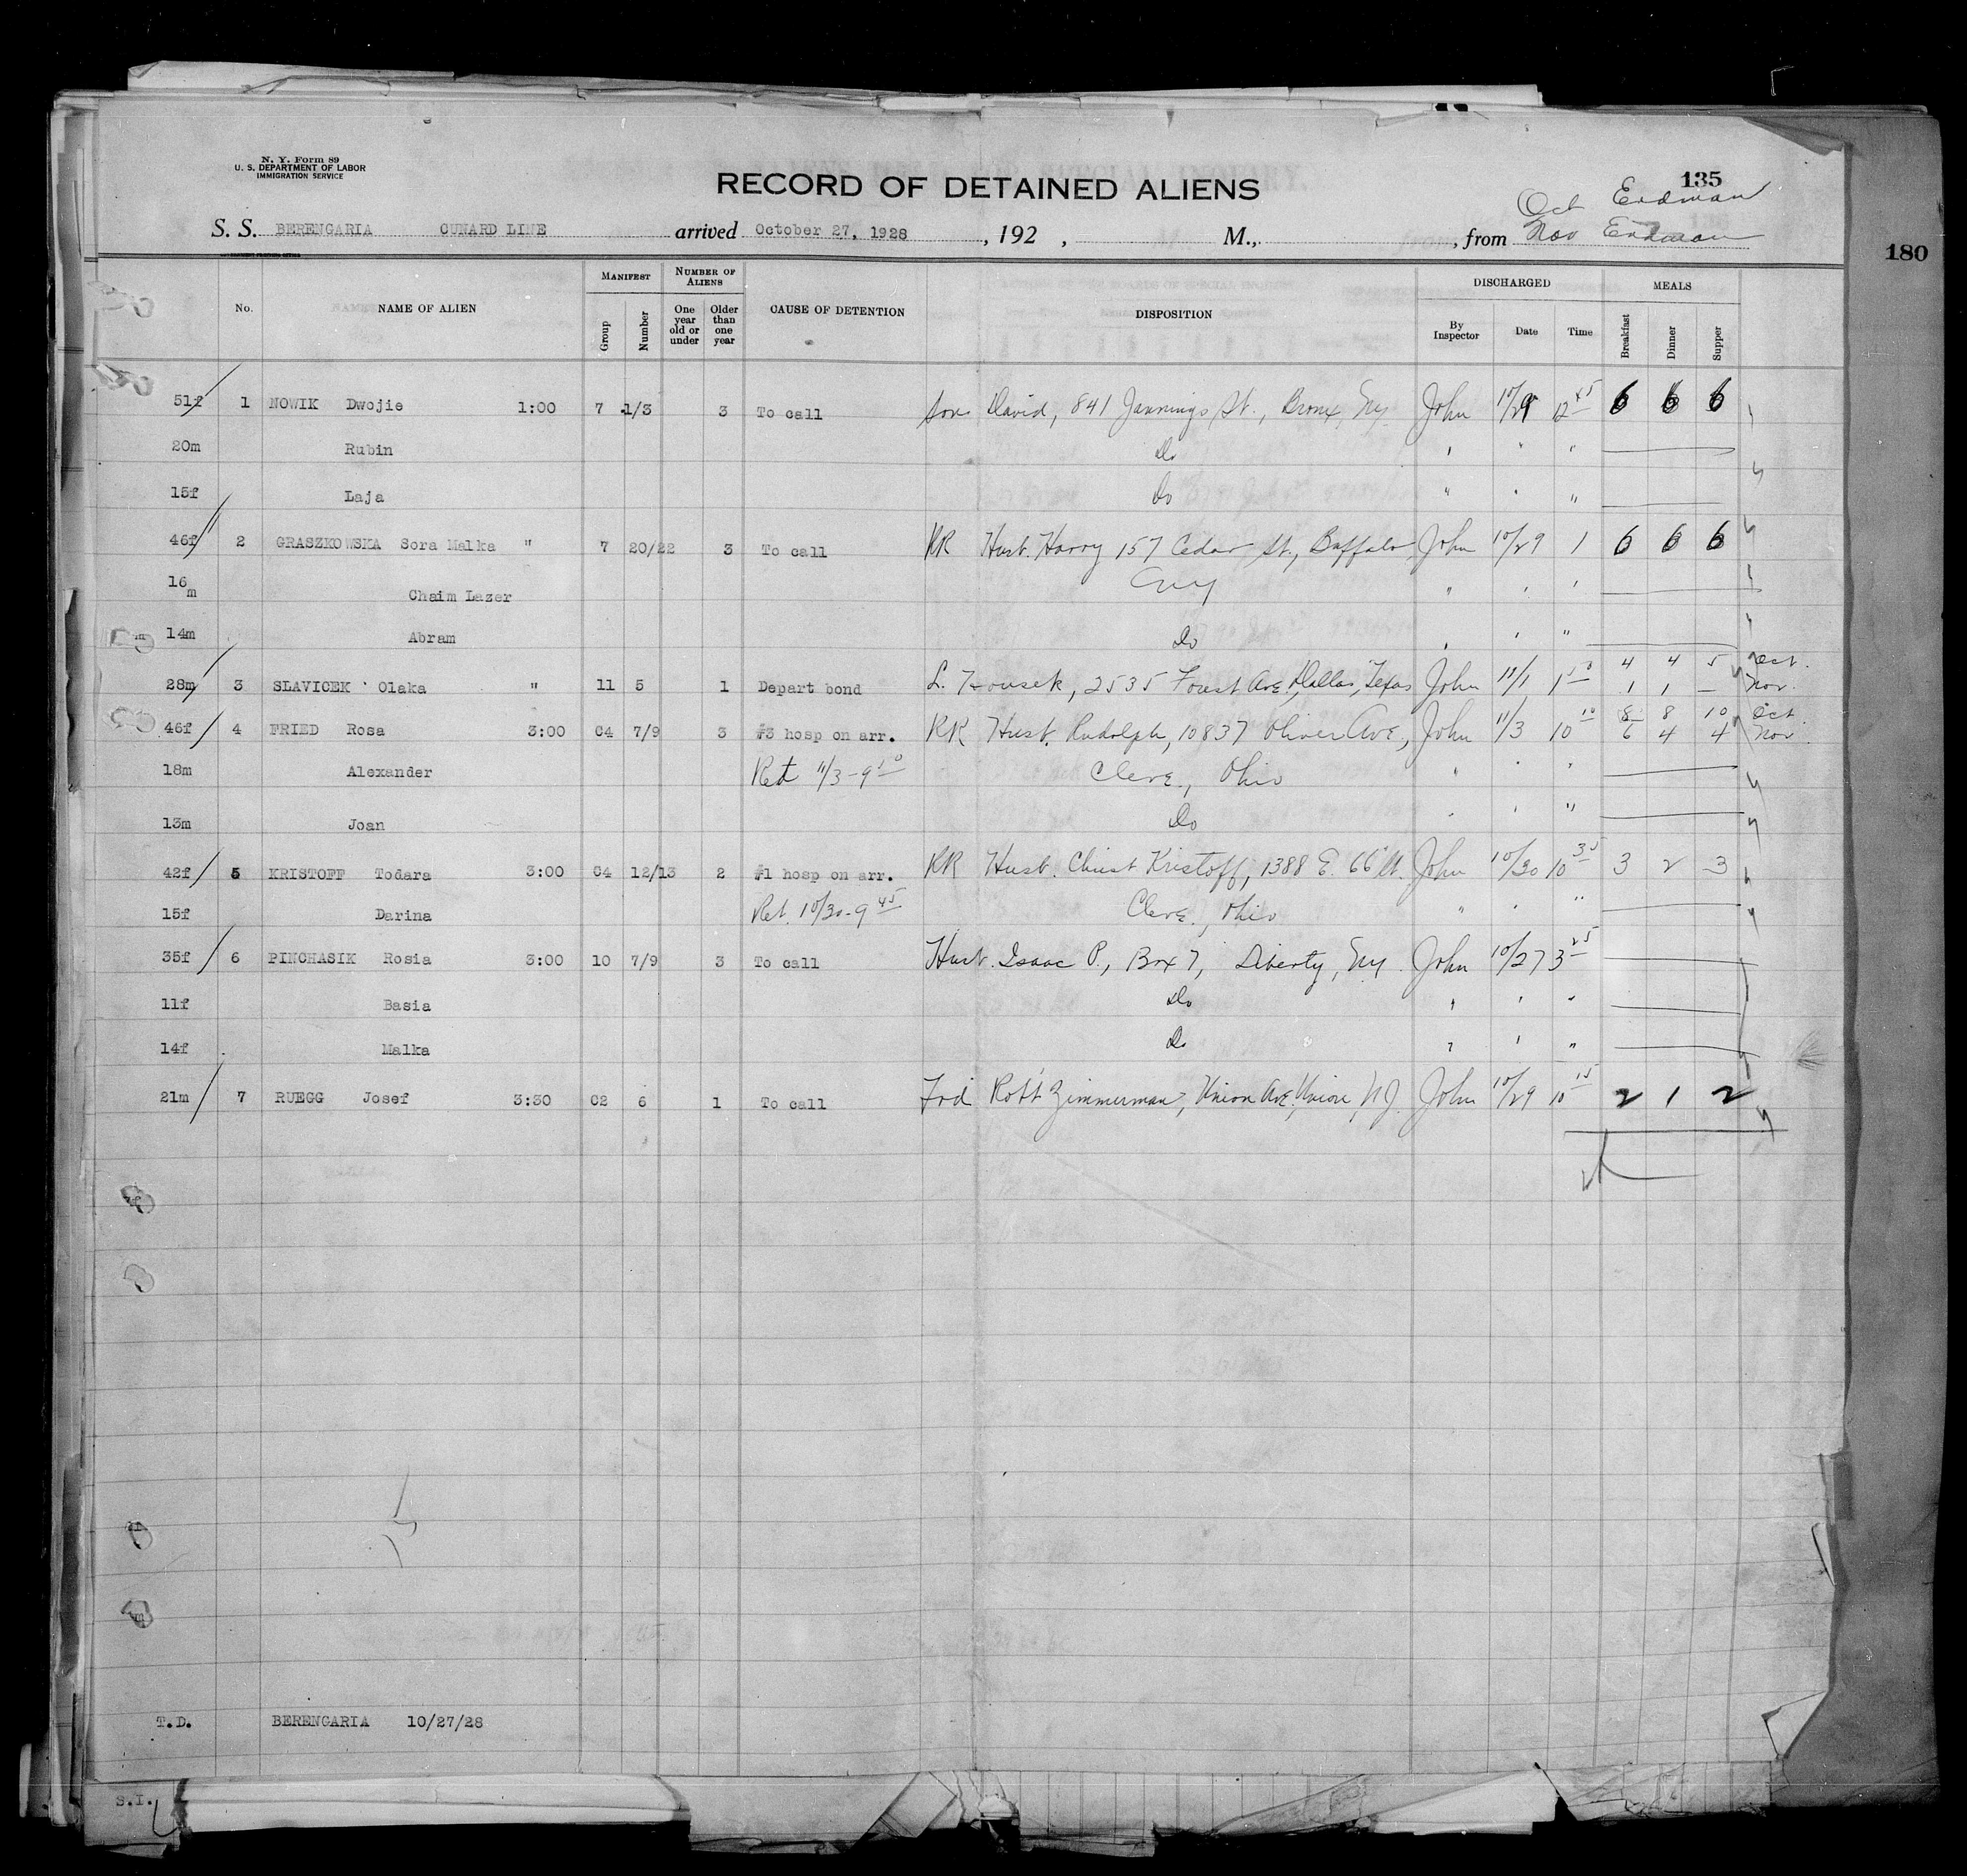 N. Y. Form 89
U. S. DEPARTMENT OF LABOR
IMMIGRATION SERVICE
RECORD OF DETAINED ALIENS
135
Oct Erdman
S. S. BERENGARIA CUNARD LINE arrived October 27, 1928 , 192 , M., , from Nov Erdman
180
No. NAME OF ALIEN MANIFEST Group Number NUMBER OF ALIENS One year old or under Older than one year CAUSE OF DETENTION DISPOSITION DISCHARGED By Inspector Date Time MEALS Breakfast Dinner Supper
51f 1 NOWIK Dwojie 1:00 7 1/3 3 To call Son David, 841 Jennings St., Bronx, Ny John 10/29 12 45 6 6 6
20m Rubin Do " " "
15f Laja Do " " "
46f 2 GRASZKOWSKA Sora Malka " 7 20/22 3 To call RR Husb. Harry 157 Cedar St., Buffalo John 10/29 1 6 6 6
16m Chaim Lazer Ny " " "
14m Abram Do " " "
4 4 5 Oct.
28m 3 SLAVICEK Olaka " 11 5 1 Depart bond L. Housek, 2535 Forest Ave, Dallas, Texas John 11/1 1 1 1 — Nov.
8 8 10 Oct.
46f 4 FRIED Rosa 3:00 C4 7/9 3 #3 hosp on arr. RR Husb. Rudolph, 10837 Oliver Ave., John 11/3 10 10 6 4 4 Nov
18m Alexander Ret 11/3-9 Cleve., Ohio " " "
13m Joan Do " " "
42f 5 KRISTOFF Todara 3:00 C4 12/13 2 #1 hosp on arr. RR Husb. Christ Kristoff, 1388 E. 66 St. John 10/30 10 35 3 2 3
15f Darina Ret. 10/30-9 45 Cleve., Ohio " " "
35f 6 PINCHASIK Rosia 3:00 10 7/9 3 To call Husb. Isaac P., Box 7, Liberty, Ny. John 10/27 3 25
11f Basia Do " " "
14f Malka Do " " "
21m 7 RUEGG Josef 3:30 C2 6 1 To call Frd Robt Zimmerman, Union Ave., Union, NJ. John 10/29 10 15 2 1 2
T.D. BERENGARIA 10/27/28
S.I.